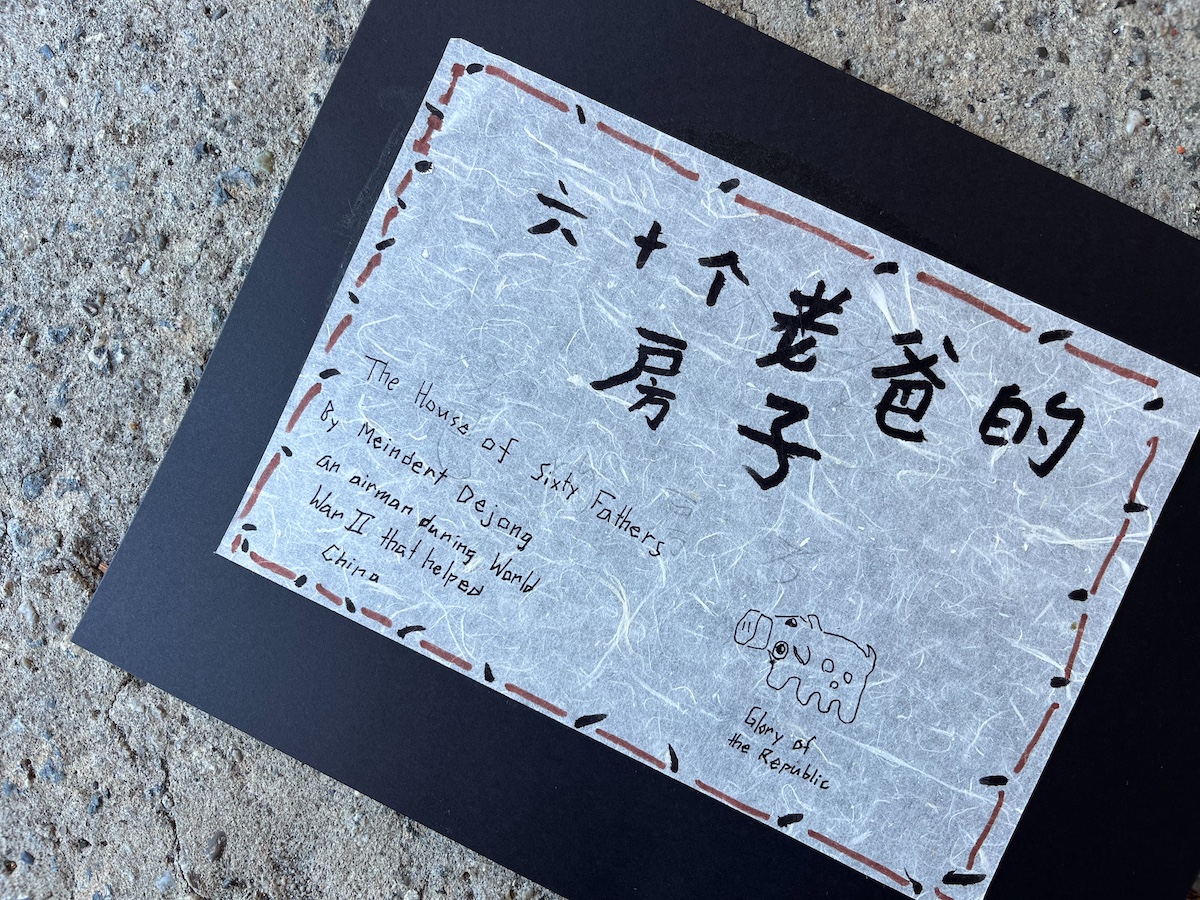 六十个老爸的
房子
The House of Sixty Fathers
By Meindert Dejong
an airman during World
War II that helped
China
Glory of
the Republic